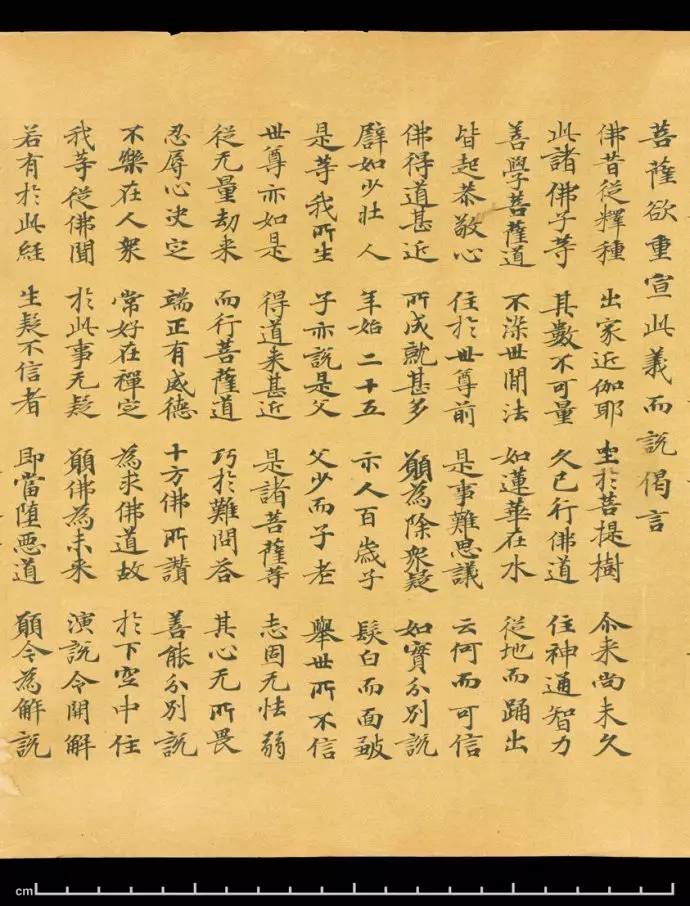 菩薩欲重宣此義而說偈言
佛昔從釋種 出家近伽耶 坐於菩提樹 尒来尚未久
此諸佛子等 其數不可量 久已行佛道 住神通智力
善學菩薩道 不染世間法 如蓮華在水 從地而踊出
皆起恭敬心 住於世尊前 是事難思議 云何而可信
佛得道甚近 所成就甚多 願為除衆疑 如實分別說
譬如少壯人 年始二十五 示人百歲子 髮白而面皺
是等我所生 子亦說是父 父少而子老 舉世所不信
世尊亦如是 得道来甚近 是諸菩薩等 志固无怯弱
從无量劫来 而行菩薩道 巧於難問答 其心无所畏
忍辱心決定 端正有威德 十方佛所讚 善能分別說
不樂在人衆 常好在禪定 為求佛道故 於下空中住
我等從佛聞 於此事无疑 願佛為未来 演說令開解
若有於此經 生疑不信者 即當墮惡道 願今為解說
cm